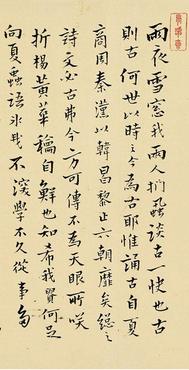 雨夜雪窓我兩人捫蝨談古一快也古
則古何世以時之今為古耶惟誦古自夏
商周秦漢以韓昌黎止六朝靡矣總之
詩文必古弗今方可傳不為天眼所咲
折楊黃華稱自解也知希我貴何足
向夏蟲語冰哉 不 深學不久從事